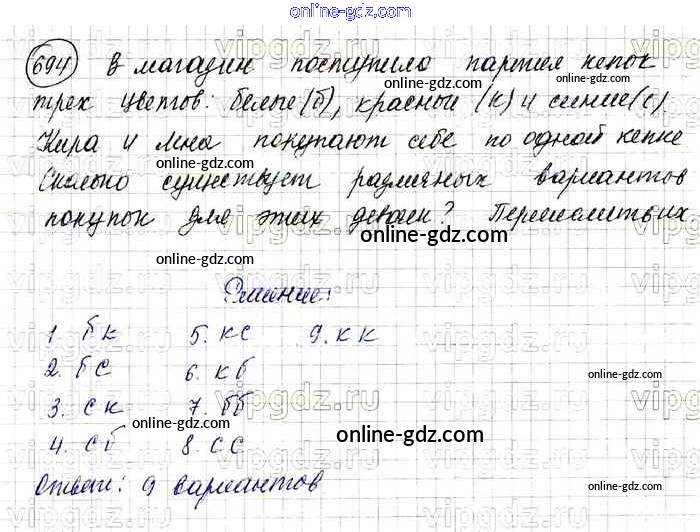 online-gdz.com
694 В магазин поступило партия кепок
трех цветов: белые (б), красные (к) и синие (с)
Кира и Инна покупают себе по одной кепке
Сколько существует различных вариантов
покупок для этих девочек? Перечислите их
Решение:
1. бк 5. кс 9. кк
2. бс 6. кб
3. ск 7. бб
4. сб 8. сс
Ответ: 9 вариантов
online-gdz.com
online-gdz.com
online-gdz.com
online-gdz.com
online-gdz.com
online-gdz.com
online-gdz.com
online-gdz.com
online-gdz.com
online-gdz.com
vipgdz.ru
vipgdz.ru
vipgdz.ru